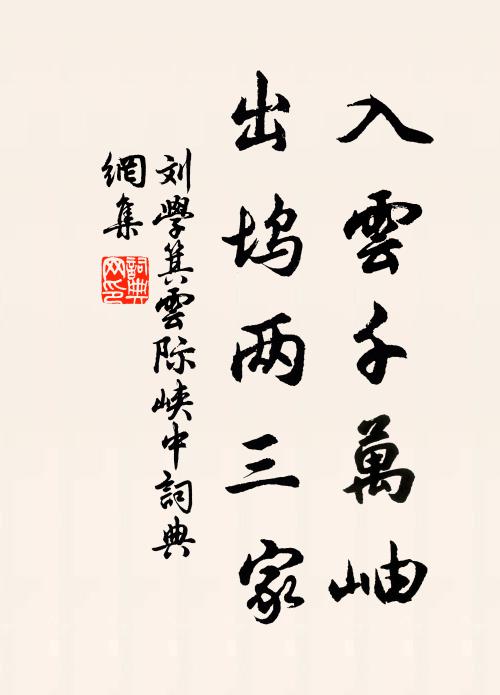 入雲千萬岫
出坞两三家
刘學箕雲际峡中詞典
網集
詞典網印